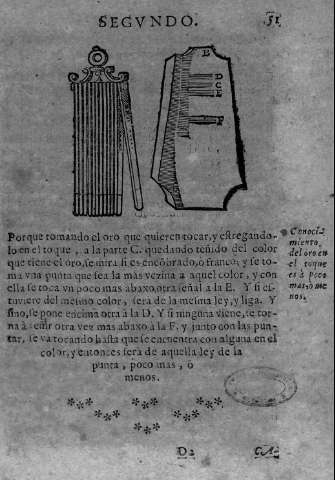 SEGVNDO. 51
B
D
C
E
F
Porque tomando el oro que quieren tocar, y estregando-
lo en el toque, a la parte C. quedando teñido del color
que tiene el oro, se mira si es encobrado, ò franco, y se to-
ma vna punta que sea la mas vezina a aquel color, y con
ella se toca vn poco mas abaxo, otra señal a la E. Y si es-
tuviere del mesmo color, sera de la mesma ley, y liga. Y
sino, se pone encima otra à la D. Y si ninguna viene, se tor-
na à teñir otra vez mas abaxo à la F. y junto con las pun-
tas, se va tocando hasta que se encuentra con alguna en el
color, y entonces sera de aquella ley de la
punta, poco mas, ò
menos.
Conoci-
miento,
del oro en
el toque
es à poco
mas, o me
nos.
D2 CA-